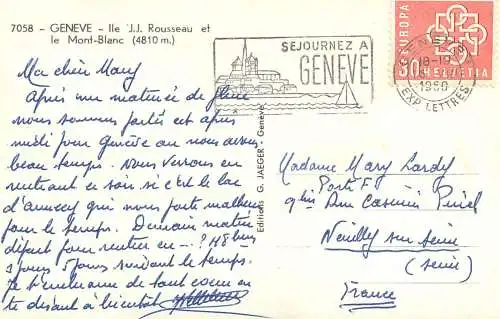 7058 - GENEVE - Ile J.J. Rousseau et
le Mont-Blanc (4810 m.)
SEJOURNEZ A
GENEVE
EUROPA
50 HELVETIA
GENEVE
18-19
1959
EXP. LETTRES
Ma chère Mary
Après une matinée de pluie
nous sommes partis cet après
midi pour Genève où nous avons
beau temps. Nous verrons en
rentrant ce soir si c'est le lac
d'annecy qui nous porte malheur
pour le temps. Demain matin
départ pour rentrer en --- ? 48 h
3 jours 5 jours suivant le temps.
Je t'embrasse de tout coeur en
te disant à bientôt
Editions G. JAEGER - Genève
Madame Mary Lardy
Porte F
9 bis Rue Casimir Pinel
Neuilly sur Seine
(Seine)
France